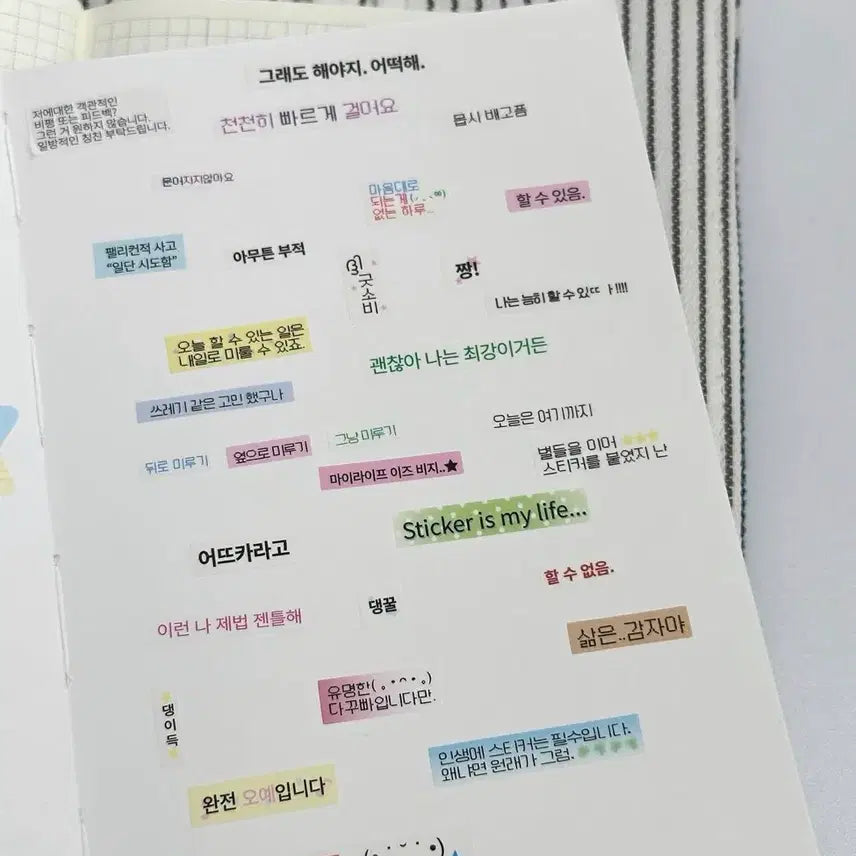 그래도 해야지. 어떡해.
저에대한 객관적인
비평 또는 피드백?
그런 거 원하지 않습니다.
일방적인 칭찬 부탁드립니다.
천천히 빠르게 걸어요
몹시 배고픔
문어지지않아요
마음대로
되는게
없는 하루...
할 수 있음.
팰리컨적 사고
“일단 시도함”
아무튼 부적
굿
소
비
짱!
나는 능히 할 수 있따!!!!
오늘 할 수 있는 일은
내일로 미룰 수 있죠.
괜찮아 나는 최강이거든
쓰레기 같은 고민 했구나
오늘은 여기까지
뒤로 미루기
옆으로 미루기
그냥 미루기
별들을 이어
스티커를 붙였지 난
마이라이프 이즈 비지..★
Sticker is my life...
어뜨카라고
할 수 없음.
이런 나 제법 젠틀해
댕꿀
삶은..감자야
유명한(｡•ᴖ•｡)
다꾸빠입니다만.
댕
이
득
인생에 스티커는 필수입니다.
왜냐면 원래가 그럼.
완전 오예입니다